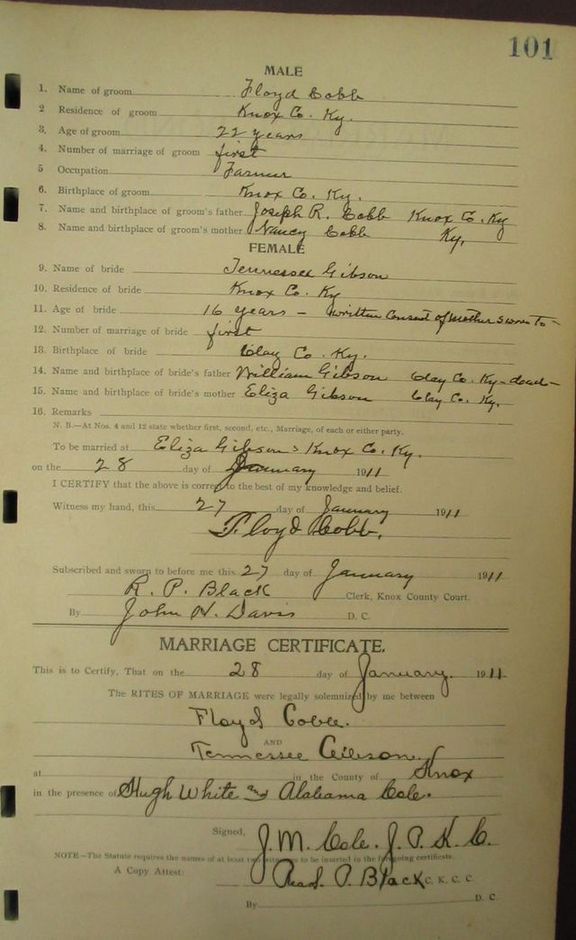 101
MALE
1. Name of groom Floyd Cobb
2 Residence of groom Knox Co. Ky.
3. Age of groom 22 years
4. Number of marriage of groom first
5 Occupation Farmer
6. Birthplace of groom Knox Co. Ky.
7. Name and birthplace of groom's father Joseph R. Cobb Knox Co. Ky
8. Name and birthplace of groom's mother Nancy Cobb Ky.
FEMALE
9. Name of bride Tennessee Gibson
10. Residence of bride Knox Co. Ky
11. Age of bride 16 years - written Consent of Mother sworn to -
12. Number of marriage of bride first
13. Birthplace of bride Clay Co. Ky.
14. Name and birthplace of bride's father William Gibson Clay Co. Ky - dead -
15. Name and birthplace of bride's mother Eliza Gibson Clay Co. Ky.
16. Remarks
N. B.—At Nos. 4 and 12 state whether first, second, etc., Marriage, of each or either party.
To be married at Eliza Gibson's Knox Co. Ky.
on the 28 day of January 1911
I CERTIFY that the above is correct to the best of my knowledge and belief.
Witness my hand, this 27 day of January 1911
Floyd Cobb.
Subscribed and sworn to before me this 27 day of January 1911
R. P. Black Clerk, Knox County Court.
By John N. Davis D. C.
MARRIAGE CERTIFICATE.
This is to Certify, That on the 28 day of January. 1911
The RITES OF MARRIAGE were legally solemnized by me between
Floyd Cobb.
AND
Tennessee Gibson.
at in the County of Knox
in the presence of Hugh White and Alabama Cole.
Signed, J. M. Cole. J. P. K. C.
NOTE—The Statute requires the names of at least two witnesses to be inserted in the foregoing certificate.
A Copy Attest: P. Black C. K. C. C.
By D. C.